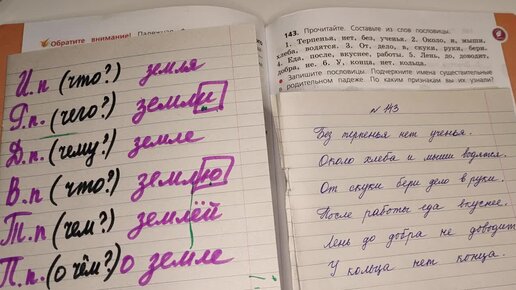 Обратите внимание!
143. Прочитайте. Составьте из слов пословицы.
1. Терпенья, нет, без, ученья. 2. Около, и, мыши,
хлеба, водятся. 3. От, дело, в, скуки, руки, бери.
4. Еда, после, вкуснее, работы. 5. Лень, до, доводит,
добра, не. 6. У, конца, нет, кольца.
Запишите пословицы. Подчеркните имена существительные
родительном падеже. По каким признакам вы их узнали?
И.п (что?) земля
Р.п. (чего?) земли
Д.п. (чему?) земле
В.п (что?) землю
Т.п (чем?) землёй
П.п. (о чём?) о земле
№ 143
Без терпенья нет ученья.
Около хлеба и мыши водятся.
От скуки бери дело в руки.
После работы еда вкуснее.
Лень до добра не доводит
У кольца нет конца.